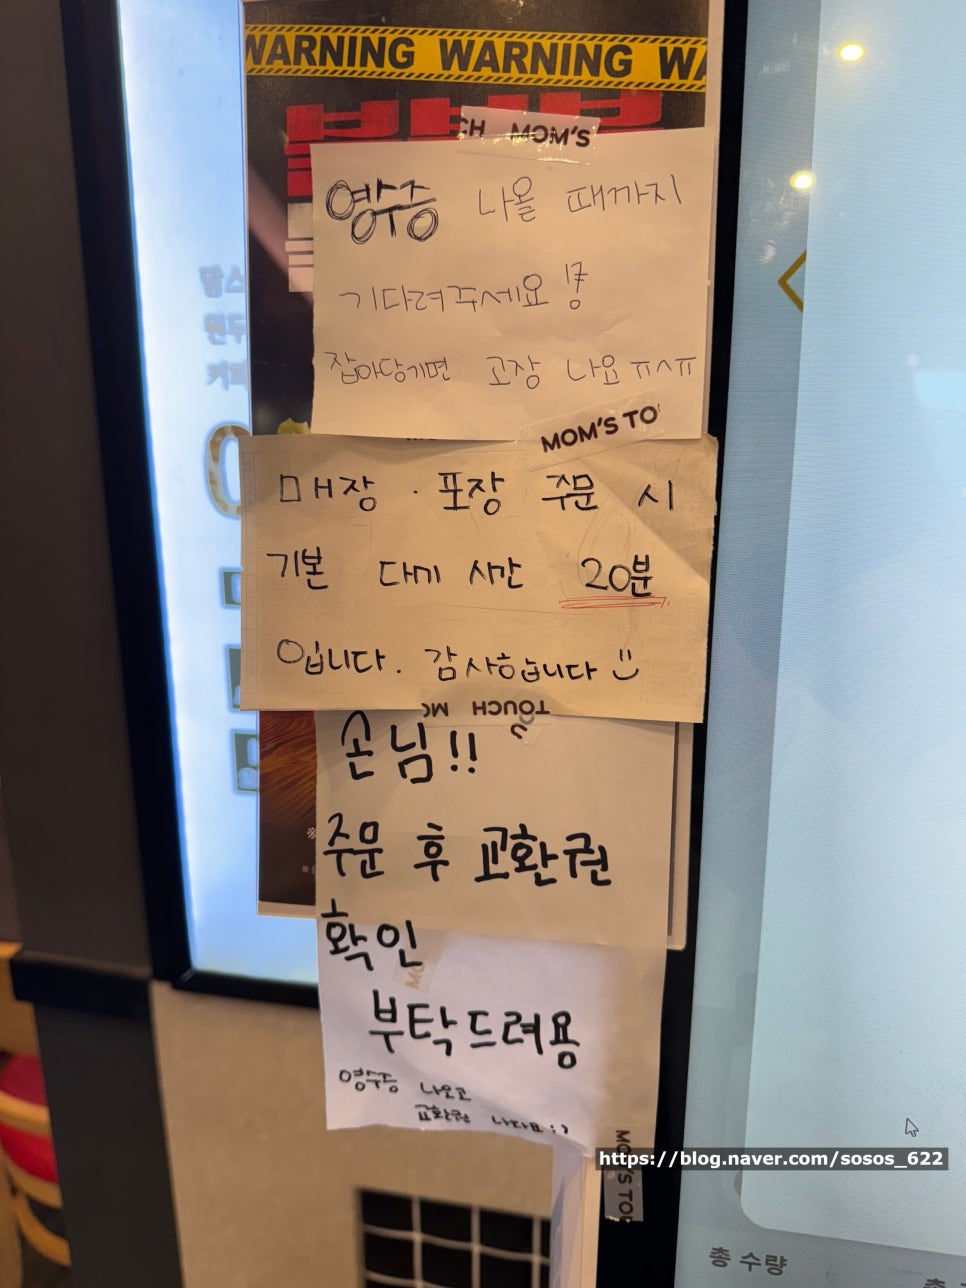 WARNING WARNING WA
CH MOM'S
영수증 나올 때까지
기다려주세요
잡아당기면 고장 나요 ㅠㅅㅠ
MOM'S TO
매장 · 포장 주문 시
기본 대기 시간 20분
입니다. 감사합니다 :)
TOUCH MO
손님!!
주문 후 교환권
확인
부탁드려용
영수증 나오고
교환권
맘스
원두
커피
https://blog.naver.com/sosos_622
MOM'S TOU
총 수량